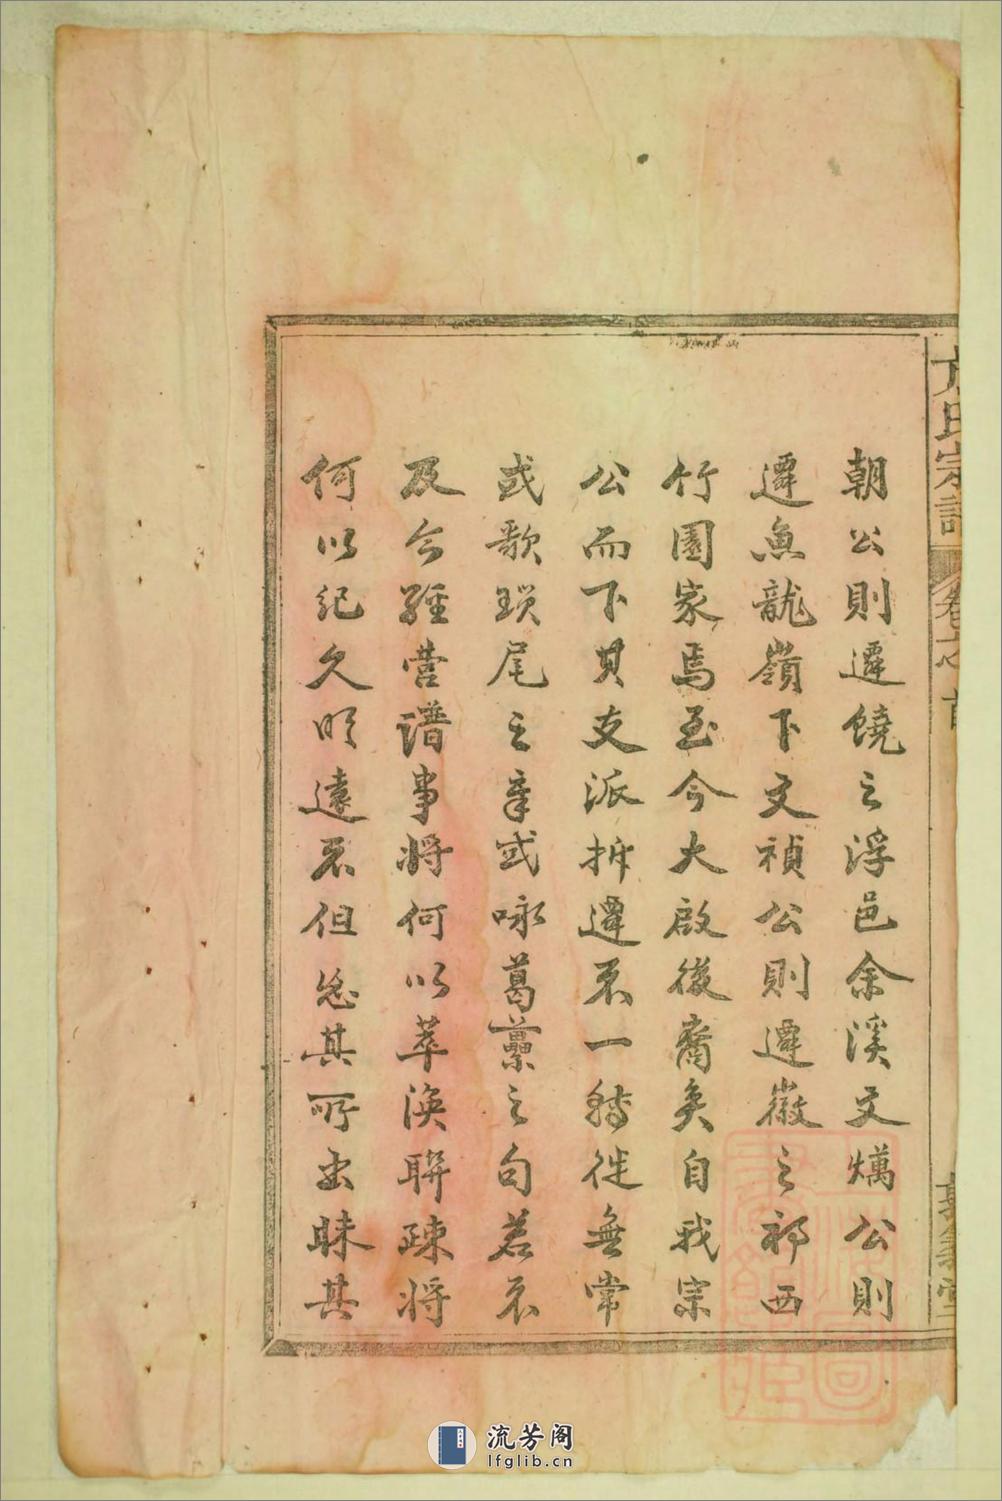 朝公則遷饒之浮邑余溪文燆公則
遷魚龍嶺下文禎公則遷徽之祁西
竹園家焉至今大啟後裔矣自我宗
公而下其支派拆遷不一轉徙無常
或歌瑣尾之章或咏葛藟之句若不
及今經營譜事將何以萃渙聨疎將
何以紀久明遠不但忘其所出昧其
方氏宗譜
卷之首
流芳阁
lfglib.cn